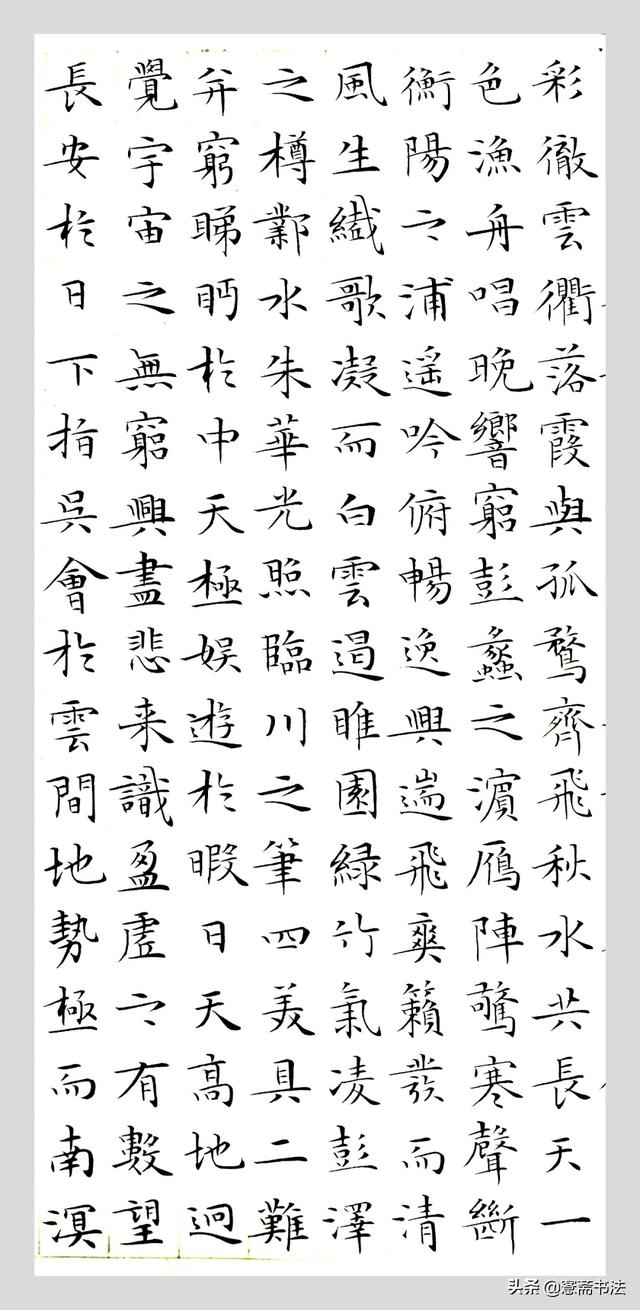 彩徹雲衢落霞與孤鶩齊飛秋水共長天一
色漁舟唱晚響窮彭蠡之濱鴈陣驚寒聲斷
衡陽之浦遥吟俯暢逸興遄飛爽籟發而清
風生纖歌凝而白雲遏睢園緑竹氣凌彭澤
之樽鄴水朱華光照臨川之筆四美具二難
并窮睇眄於中天極娱遊於暇日天高地迥
覺宇宙之無窮興盡悲来識盈虚之有數望
長安於日下指吳會於雲間地勢極而南溟
头条@窓斋书法